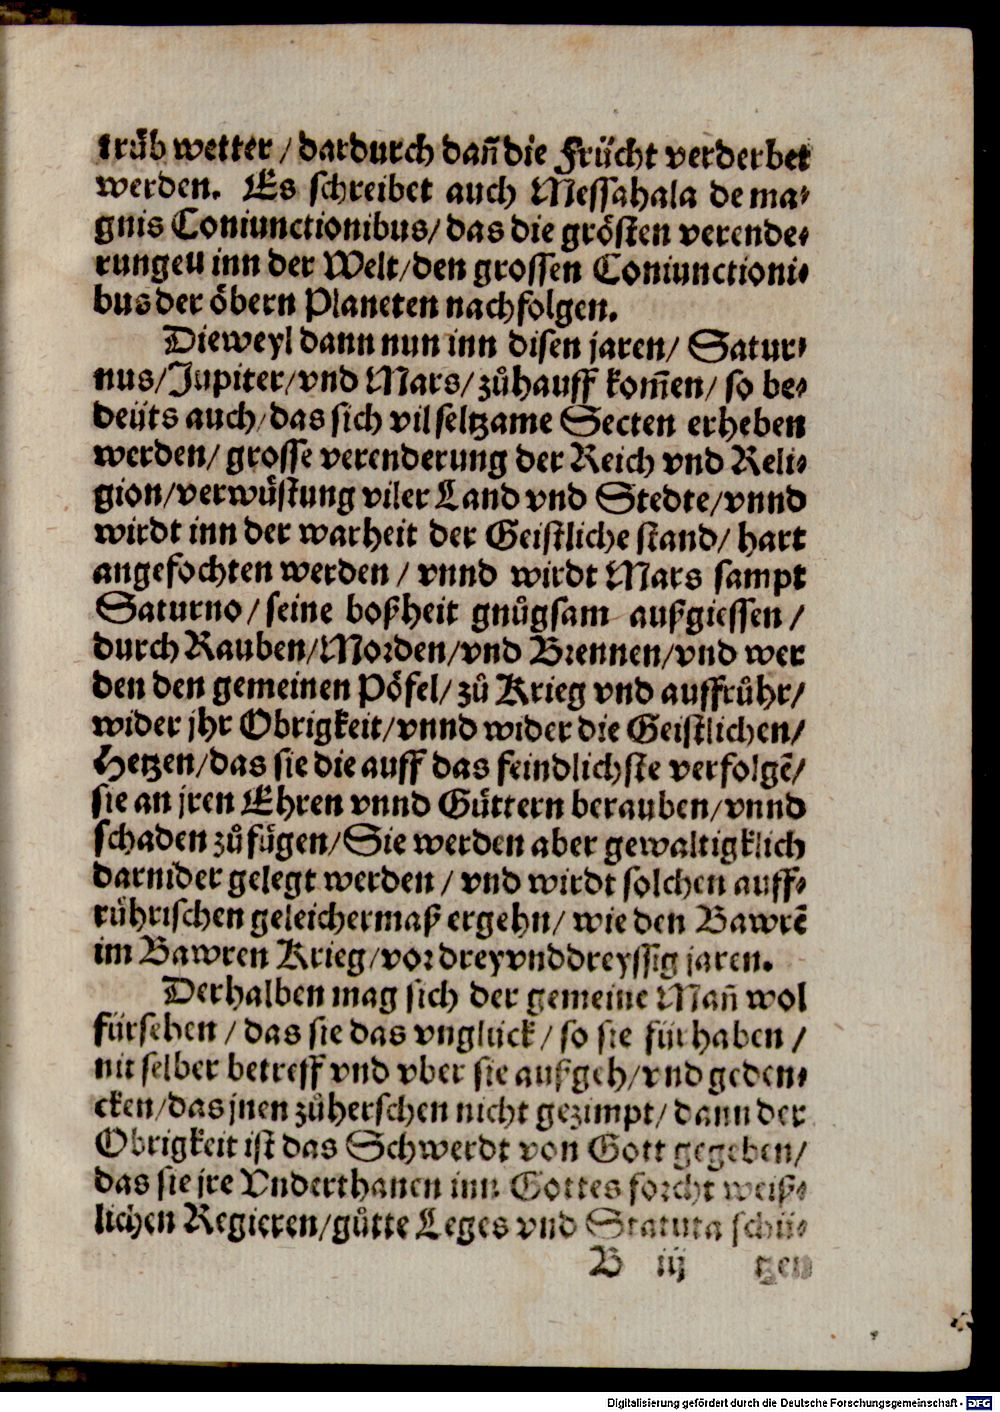 trüb wetter / dardurch dañ die Frücht verderbet
werden. Es schreibet auch Messahala de ma⸗
gnis Coniunctionibus/ das die grösten verende⸗
rungen inn der Welt/ den grossen Coniunctioni⸗
bus der öbern Planeten nachfolgen.
Dieweyl dann nun inn disen jaren/ Satur⸗
nus/ Jupiter/ vnd Mars/ zůhauff kom̃en/ so be⸗
deüts auch/ das sich vil seltzame Secten erheben
werden/ grosse verenderung der Reich vnd Reli⸗
gion/ verwüstung viler Land vnd Stedte/ vnnd
wirdt inn der warheit der Geistliche stand/ hart
angefochten werden / vnnd wirdt Mars sampt
Saturno / seine boßheit gnůgsam außgiessen /
durch Rauben/ Morden/ vnd Brennen/ vnd wer
den den gemeinen Pöfel/ zů Krieg vnd auffrůhr/
wider jhr Obrigkeit/ vnnd wider die Geistlichen/
Hetzen/ das sie die auff das feindlichste verfolgẽ/
sie an jren Ehren vnnd Güttern berauben/ vnnd
schaden zůfügen/ Sie werden aber gewaltigklich
darnider gelegt werden / vnd wirdt solchen auff⸗
růhrischen geleichermaß ergehn/ wie den Bawrẽ
im Bawren Krieg/ vor drey vnd dreyssig jaren.
Derhalben mag sich der gemeine Mañ wol
fürsehen / das sie das vnglück/ so sie für haben /
nit selber betreff vnd vber sie außgeh/ vnd geden⸗
cken/ das jnen zůherschen nicht gezimpt/ dann der
Obrigkeit ist das Schwerdt von Gott gegeben/
das sie jre Vnderthanen inn Gottes forcht weiß⸗
lichen Regieren/ gůtte Leges vnd Statuta schü⸗
B iij tzen
Digitalisierung gefördert durch die Deutsche Forschungsgemeinschaft - DFG